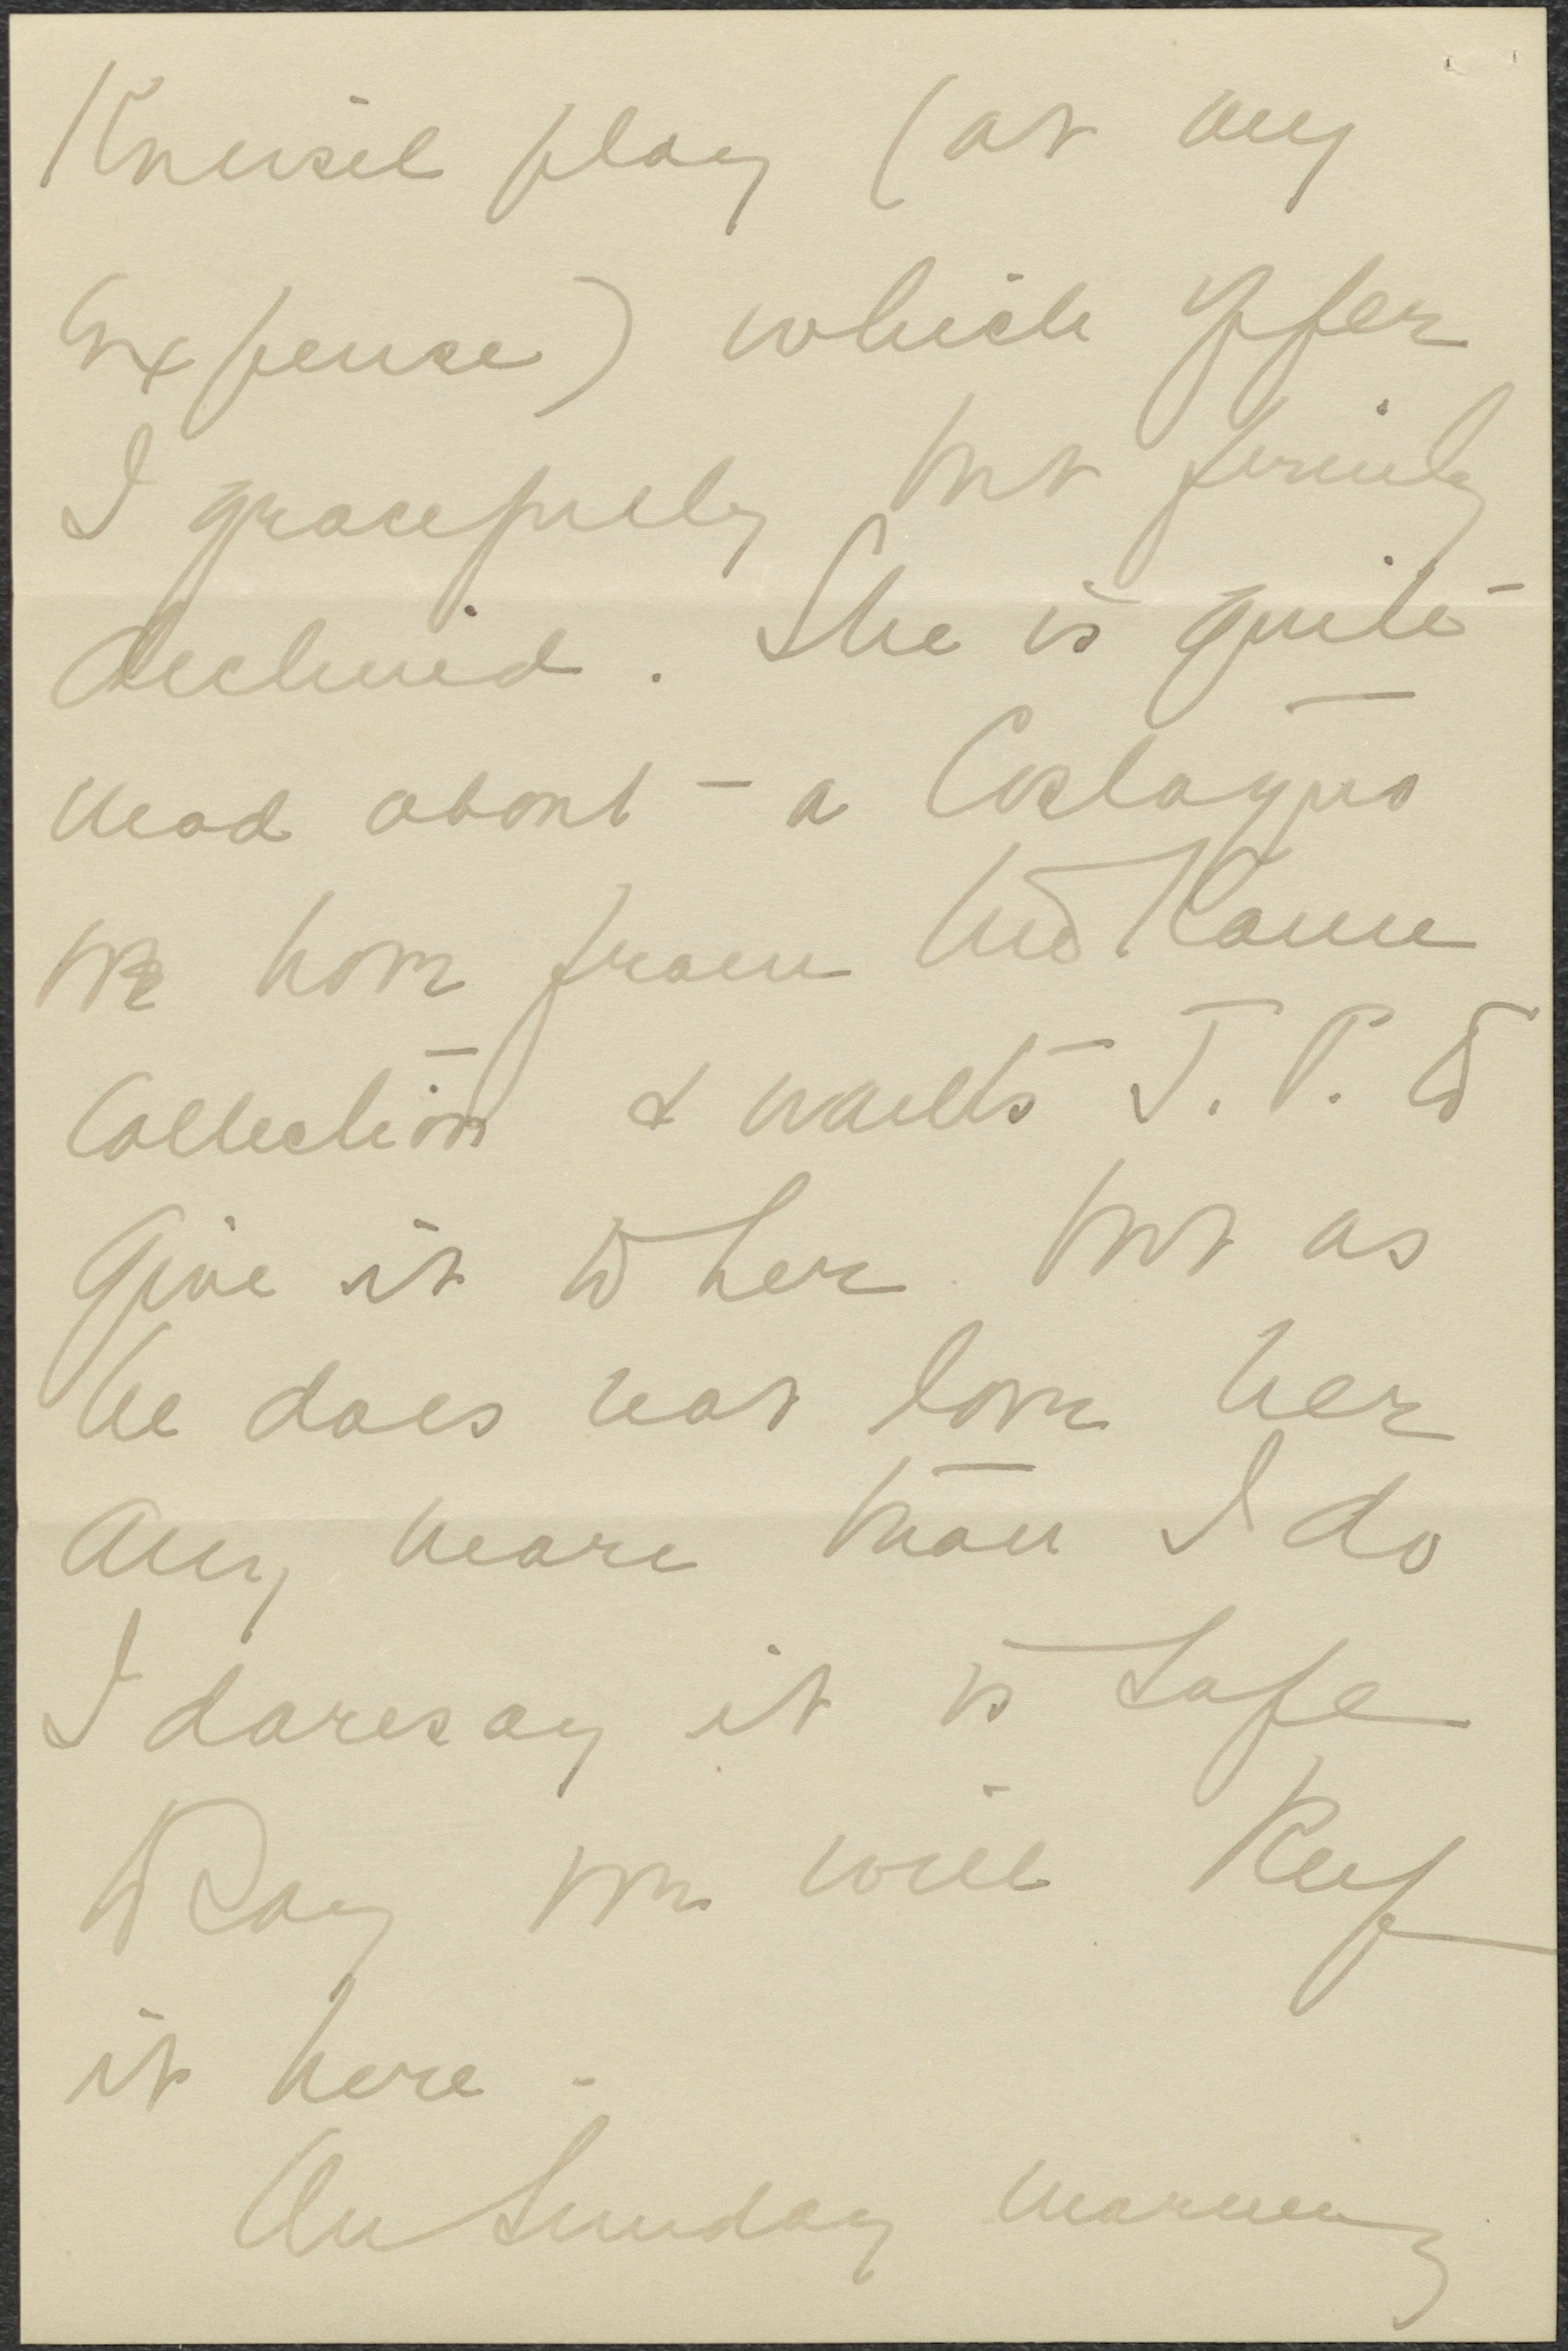 Kneisel play (at my
expense) which offer
I gracefully but firmly
declined. She is quite
mad about - a Castagno
we have from the Kann
Collection & wants J. P. to
give it to her but as
he does not love her
any more than I do
I daresay it is safe
to say we will keep
it here -
On Sunday morning